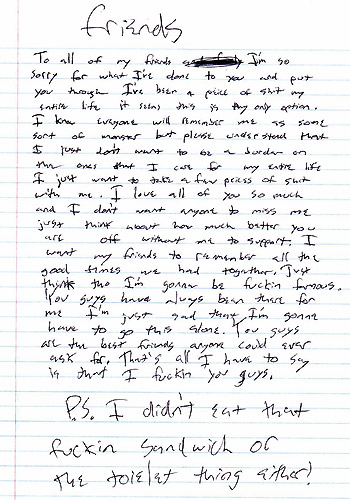 friends
To all of my friends I'm so
sorry for what I've done to you and put
you through I've been a peice of shit my
entire life it seems this is my only option.
I know everyone will remember me as some
sort of monster but please understand that
I just don't want to be a burdon on
the ones that I care for my entire life
I just want to take a few pieces of shit
with me. I love all of you so much
and I don't want anyone to miss me
just think about how much better you
are off without me to support. I
want my friends to remember all the
good times we had together. Just
think tho I'm gonna be fuckin famous.
You guys have always been there for
me I'm just sad that I'm gonna
have to go this alone. You guys
are the best friends anyone could ever
ask for. That's all I have to say
is that I fuckin you guys.
P.S. I didn't eat that
fuckin sandwich or
the toielet thing either!